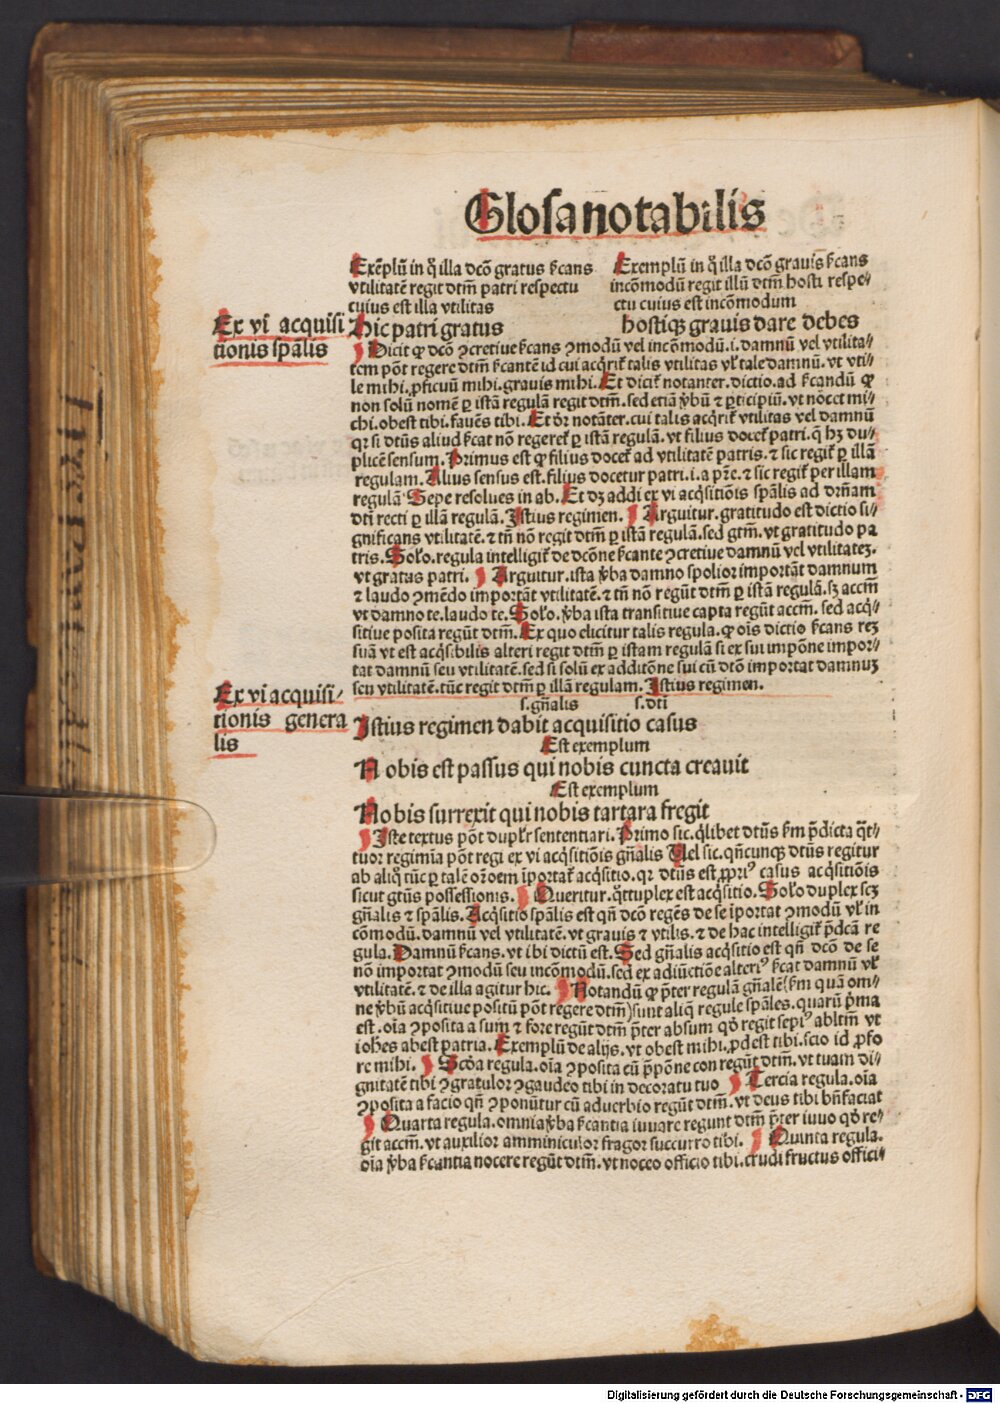 Glosa notabilis
Exēplū in q̄ illa dcō gratus ſcans
vtilitatē regit dtm̄ patri respectu
cuius est illa vtilitas
Exemplū in q̄ illa dcō grauis ſcans
incōmodū regit illū dtm̄ hosti respe⸗
ctu cuius est incōmodum
Ex vi acquisi
tionis spālis
Hic patri gratus
hostiqꝫ grauis dare debes
Dicit ꝙ dcō ↄcretiue ſcans ↄmodū vel incōmodū.i.damnū vel vtilita⸗
tem pōt regere dtm̄ ſcantē id cui acq̇rit̄ talis vtilitas vl̄ tale damnū. vt vti⸗
le mihi. ꝓficuū mihi. grauis mihi. Et dicit̄ notanter. dictio. ad ſcandū ꝙ
non solū nomē ꝑ istā regulā regit dtm̄. sed etiā v̄bū ⁊ ꝑticipiū. vt nocet mi⸗
chi. obest tibi. fauēs tibi. Et dr̄ notāter. cui talis acq̇rit̄ vtilitas vel damnū
qr si dtūs aliud ſcat nō regeret̄ ꝑ istā regulā. vt filius docet̄ patri. q̄ hꝫ du⸗
plicē sensum. Primus est ꝙ filius docet̄ ad vtilitatē patris. ⁊ sic regit̄ ꝑ illā
regulam. Alius sensus est. filius docetur patri. i. a pr̄e. ⁊ sic regit̄ per illam
regulā Sepe resolues in ab. Et dꝫ addi ex vi acq̇sitiōis spālis ad dr̄nam
dti recti ꝑ illā regulā. Istius regimen. Arguitur. gratitudo est dictio si⸗
gnificans vtilitatē. ⁊ tn̄ nō regit dtm̄ ꝑ istā regulā. sed gtm̄. vt gratitudo pa
tris. Solo. regula intelligit̄ de dcōne ſcante ↄcretiue damnū vel vtilitateꝫ.
vt gratus patri. Arguitur. ista v̄ba damno spolior importāt damnum
⁊ laudo ↄmēdo importāt vtilitatē. ⁊ tn̄ nō regūt dtm̄ ꝑ istā regulā. sꝫ accm̄
vt damno te. laudo te. Solo. v̄ba ista transitiue capta regūt accm̄. sed acq̇⸗
sitiue posita regūt dtm̄. Ex quo elicitur talis regula. ꝙ ois dictio ſcans reꝫ
suā vt est acq̇sibilis alteri regit dtm̄ ꝑ istam regulā si ex sui impōne impor⸗
tat damnū seu vtilitatē. sed si solū ex additōne sui cū dtō importat damnuꝫ
seu vtilitatē. tūc regit dtm̄ ꝑ illā regulam. Istius regimen.
Ex vi acquisi⸗
tionis genera
lis
s.gn̄alis s.dti
Istius regimen dabit acquisitio casus
Est exemplum
Nobis est passus qui nobis cuncta creauit
Est exemplum
Nobis surrexit qui nobis tartara fregit
Iste textus pōt duplr̄ sententiari. Primo sic. q̄libet dtūs ſm p̄dicta q̄t⸗
tuor regimīa pōt regi ex vi acq̇sitiōis gn̄alis Vel sic. qn̄cunqꝫ dtūs regitur
ab aliq̄ tūc ꝑ talē or̄oem īportat̄ acq̇sitio. qr dtūs est ꝓpriꝰ casus acq̇sitiōis
sicut gtūs possessionis. Queritur. q̄ttuplex est acq̇sitio. Solo duplex scꝫ
gn̄alis ⁊ spālis. Acq̇sitio spālis est qn̄ dcō regēs de se īportat ↄmodū vl̄ in
cōmodū. damnū vel vtilitatē. vt grauis ⁊ vtilis. ⁊ de hac intelligit̄ p̄dcā re
gula. Damnū ſcans. vt ibi dictū est. Sed gn̄alis acq̇sitio est qn̄ dcō de se
nō importat ↄmodū seu incōmodū. sed ex adiūctiōe alteriꝰ ſcat damnū vl̄
vtilitatē. ⁊ de illa agitur hic. Notandū ꝙ p̄ter regulā gn̄alē (ſm quā om⸗
ne v̄bū acq̇sitiue positū pōt regere dtm̄) sunt aliq̄ regule spāles. quarū p̄ma
est. oīa ↄposita a sum ⁊ fore regūt dtm̄ p̄ter absum qd̄ regit sepiꝰ abltm̄ vt
ioh̄es abest patria. Exemplū de alijs. vt obest mihi. ꝓdest tibi. scio id ꝓfo
re mihi. Scd̄a regula. oīa ↄposita cū p̄pōne con regūt dtm̄. vt tuam di⸗
gnitatē tibi ↄgratulor ↄgaudeo tibi in decoratu tuo Tercia regula. oīa
ↄposita a facio qn̄ ↄponūtur cū aduerbio regūt dtm̄. vt deus tibi bn̄faciat
Quarta regula. omnia v̄ba ſcantia iuuare regunt dtm̄ p̄ter iuuo qd̄ re⸗
git accm̄. vt auxilior amminiculor fragor succurro tibi. Quinta regula.
oīa v̄ba ſcantia nocere regūt dtm̄. vt noceo officio tibi. crudi fructus offici⸗
Digitalisierung gefördert durch die Deutsche Forschungsgemeinschaft - DFG